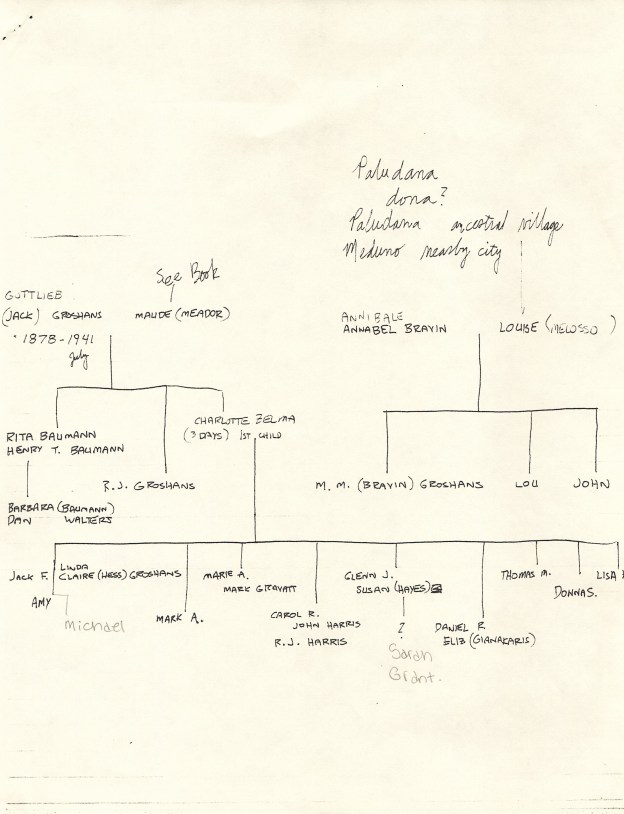 Paludana
dona?
Paludana ancestral village
Meduno nearby city
See Book
GOTTLIEB
(JACK) GROSHANS
MAUDE (MEADOR)
1878-1941
July
ANNIBALE
ANNABEL BRAVIN
LOUISE (MELOSSO)
CHARLOTTE ZELMA
(3 DAYS) 1ST CHILD
RITA BAUMANN
HENRY T. BAUMANN
R.J. GROSHANS
M. M. (BRAVIN) GROSHANS
LOU
JOHN
BARBARA (BAUMANN)
DAN WALTERS
JACK F.
LINDA
CLAIRE (HESS) GROSHANS
AMY
Michael
MARK A.
MARIE A.
MARK GRAVATT
CAROL R.
JOHN HARRIS
R.J. HARRIS
GLENN J.
SUSAN (HAYES)
?
Sarah
Grant.
DANIEL R
ELIZ (GIANAKARIS)
THOMAS M.
DONNA S.
LISA